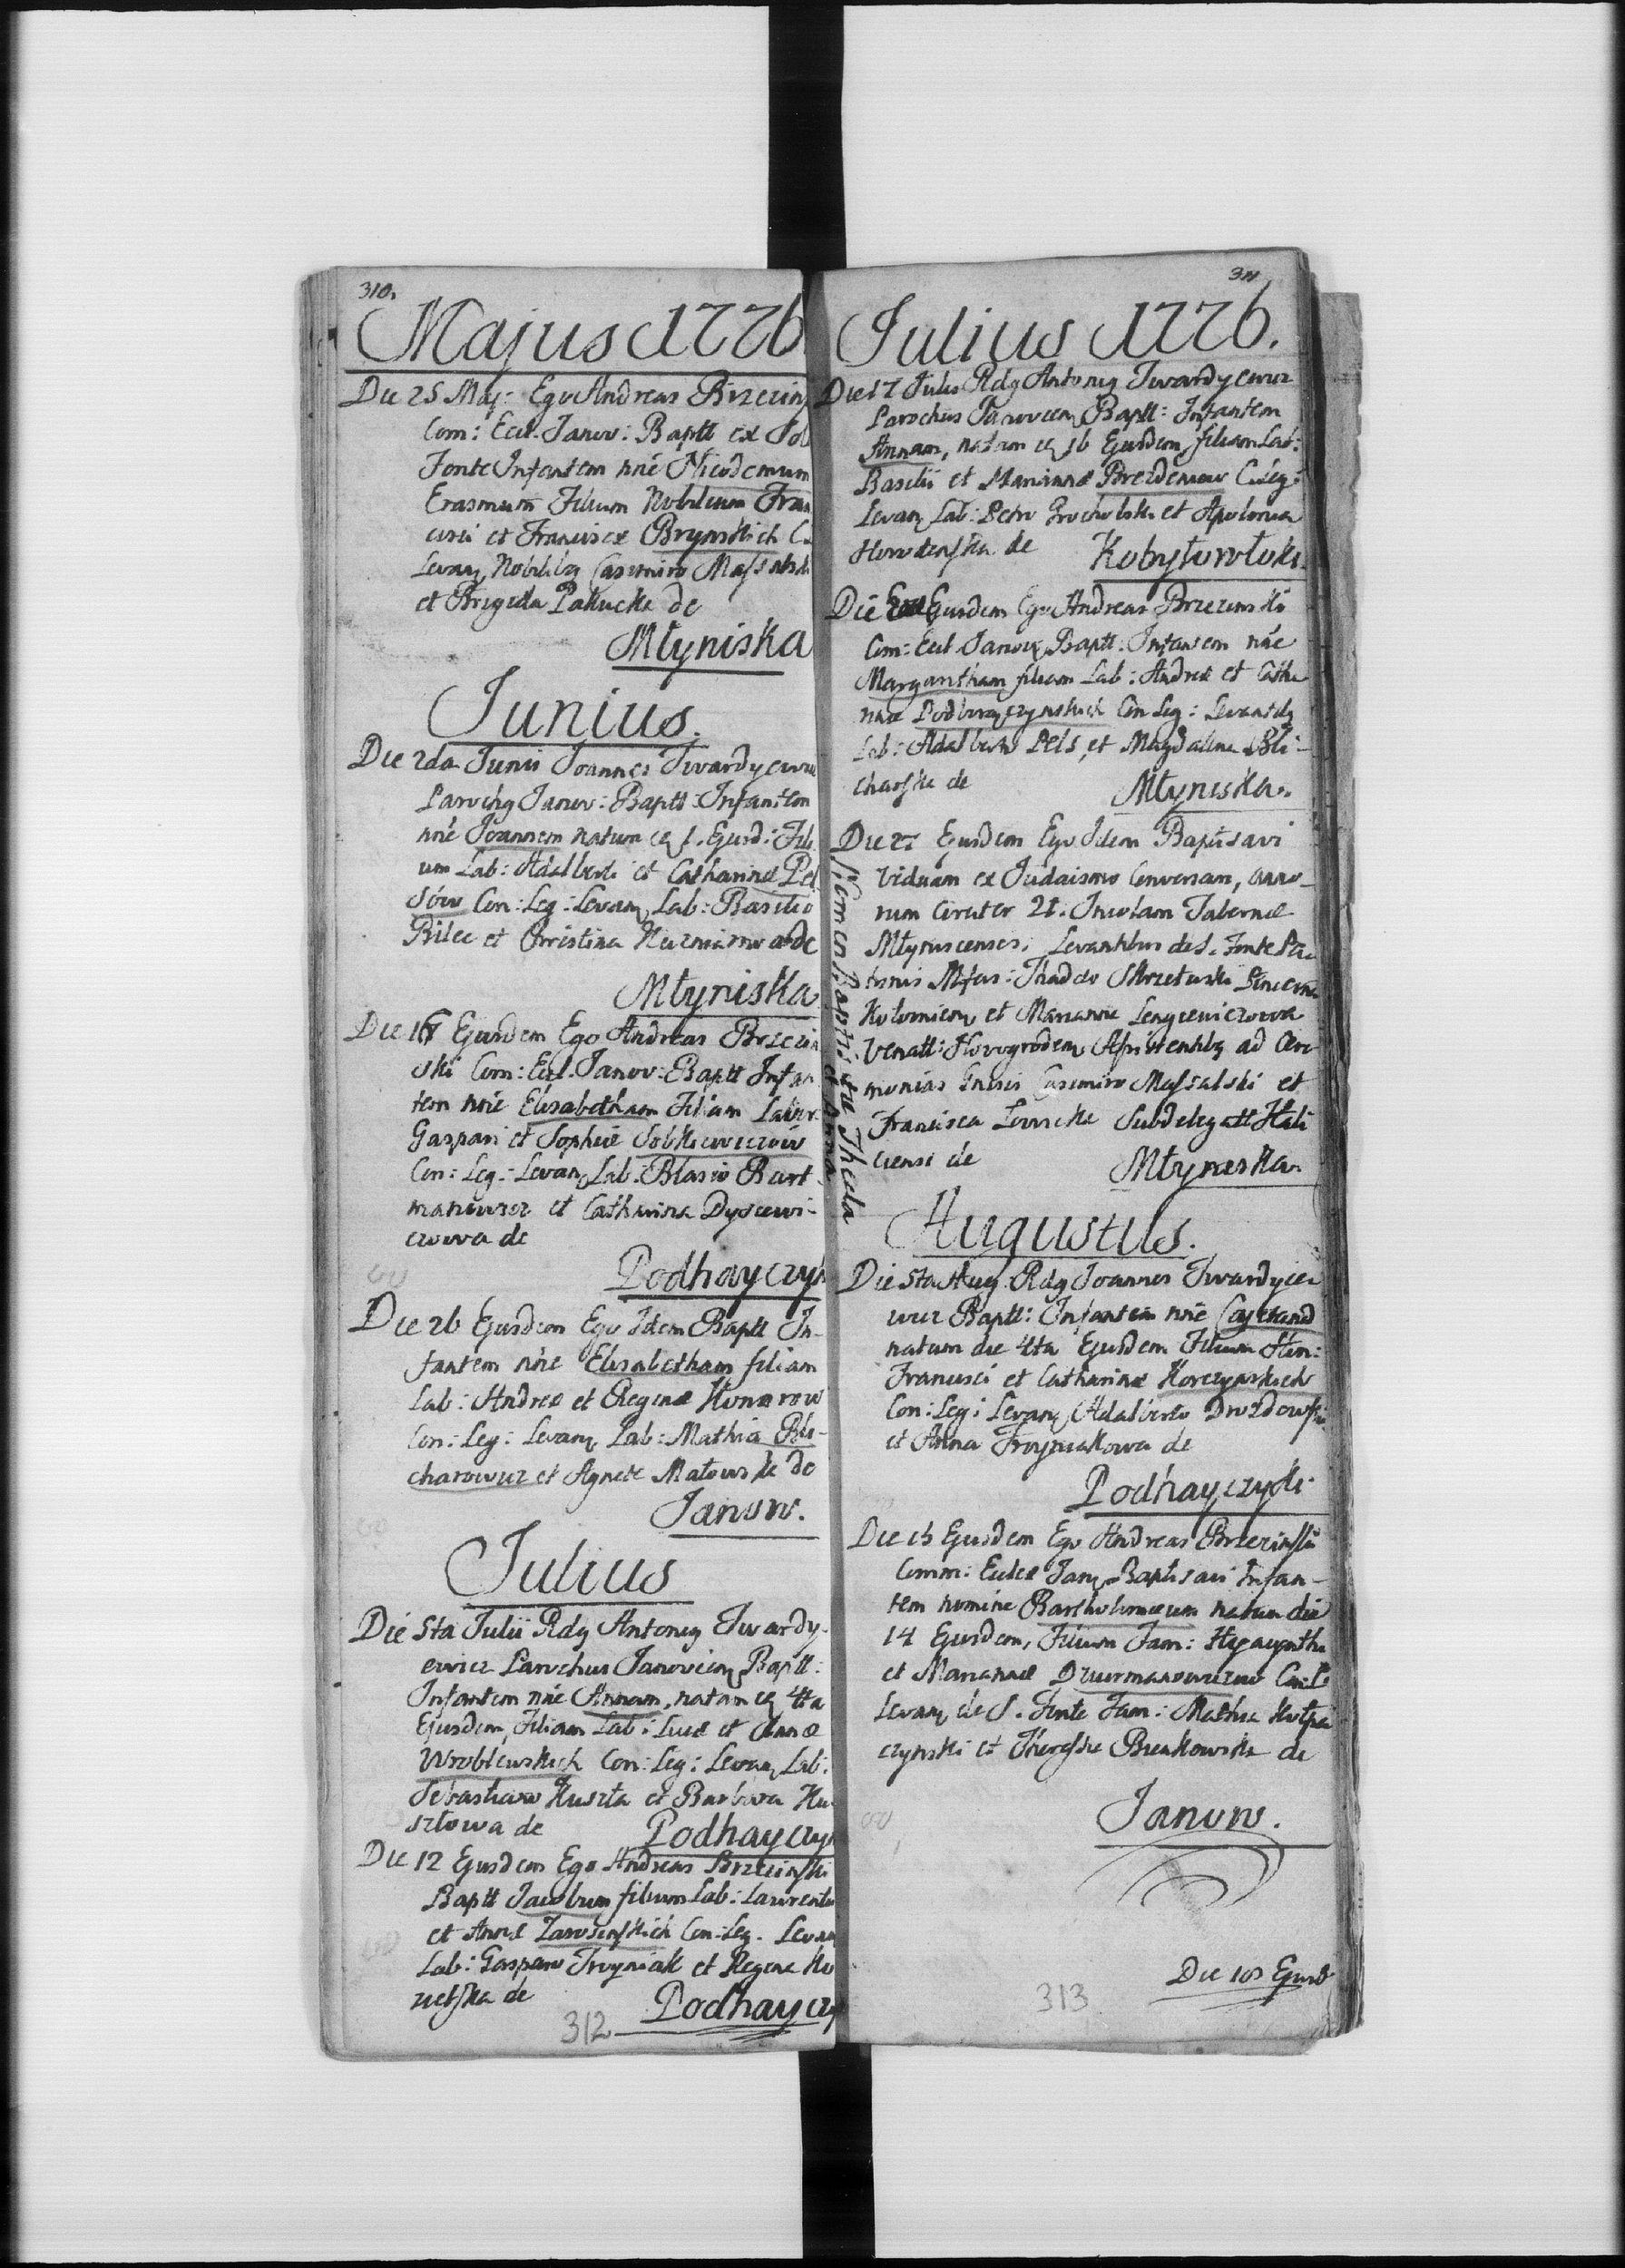 310.
Majus 1776
Die 25 Maj: Ego Andreas Brzezin
Com: Eccl. Janov: Baptt ex Sol
Fonte Infantem nne Nicodemum
Erasmum Filium Nobilium Fran
cisci et Franciscæ Brynskich C.
Levan, Nobilibq Casimiro Massalski
et Brigitta Pakucka de
Młyniska
Junius.
Die 2da Junii Joannes Twardyewic
Parochq Janov: Baptt: Infantem
nne Joannem natum 1. Ejusd: Fili
um Lab: Adalberti et Catharinæ Pel
sów Con: Leg: Levan, Lab: Basilio
Bilec et Christina Kuzniarowa de
Młyniska
Die 16 Ejusdem Ego Andreas Brzezin
ski Com: Eccl. Janov: Baptt Infan
tem nne Elisabetham Filiam Labor:
Gaspari et Sophiæ Sobkiewiczów
Con: Leg: Levan, Lab: Blasio Burt
manowicz et Catharina Dyscewi-
czowa de
Podhayczyk
Die 26 Ejusdem Ego Idem Baptt In-
fantem nne Elisabetham filiam
Lab: Andreæ et Reginæ Honorow
Con: Leg: Levan, Lab: Mathia Bli-
charowicz et Agnete Matowska de
Janow.
Julius
Die 5ta Julii Rdq Antonq Twardy-
ewicz Parochus Janovien, Baptt:
Infantem nne Annam, natam 4ta
Ejusdem, Filiam Lab: Lucæ et Annæ
Wroblewskich Con: Leg: Levan, Lab:
Sebastiano Huszta et Barbara Hu-
sztowa de Podhayczyk
Die 12 Ejusdem Ego Andreas Brzezinski
Baptt Jacobum filium Lab: Laurentii
et Annæ Jarosinskich Con: Leg. Levan
Lab: Gasparo Troyniak et Regina Ko
de Podhayczy
312
311
Julius 1776.
Die 17 Julii Rdq Antonq Twardyewicz
Parochus Janovien, Baptt: Infantem
Annam, natam 16 Ejusdem, filiam Lab:
Basilii et Mariannæ Brezdeniow C: Leg:
Levan, Lab: Petro Grocholski et Apolonia
Horodenska de Kobyłowłoki.
Die Ejusdem Ego Andreas Brzezinski
Com: Eccl. Janov, Baptt. Infantem nne
Margaritham filiam Lab: Andreæ et Catha
rinæ Podhayczynskich Con Leg: Levantbq
Lab: Adalberto Pels, et Magdalena Bli-
charska de Młyniska.
Die 27 Ejusdem Ego Idem Baptisavi
Viduam ex Judaismo Conversam, anno-
rum circiter 21. Incolam Tabernæ
Młyniscensis, Levantibus de S. Fonte Pa-
tronis Mfcis: Thaddeo Skrzetuski
Kolomien, et Marianna Lengiewiczowa
Venatt: Novogroden, Assistentibq ad Cere
monias Gnosis Casimiro Massalski et
Francisca Subdelegatt Hali
ciensi de Młyniska.
Nomen Baptisatæ Thecla
et Anna
Augustus.
Die 5ta Aug. Rdq Joannes Twardyie-
wicz Baptt: Infantem nne Cajetand
natum die 4ta Ejusdem Filium
Francisci et Catharinæ Korczynskich
Con: Leg: Levan, Adalberto Drozdowski
et Anna Troyniakowa de
Podhayczyki
Die 15 Ejusdem Ego Andreas Brzezinski
Comm: Eccleæ Jan, Baptisavi Infan-
tem nomine Bartholomæum natum die
14 Ejusdem, Filium Fam: Hyacynthi
et Mariannæ Druirmanowiczow Con: L:
Levan, de S. Fonte Fam: Mathia
czynski et Theressia Bienkowska de
Janow.
Die 10 Ejusd
313